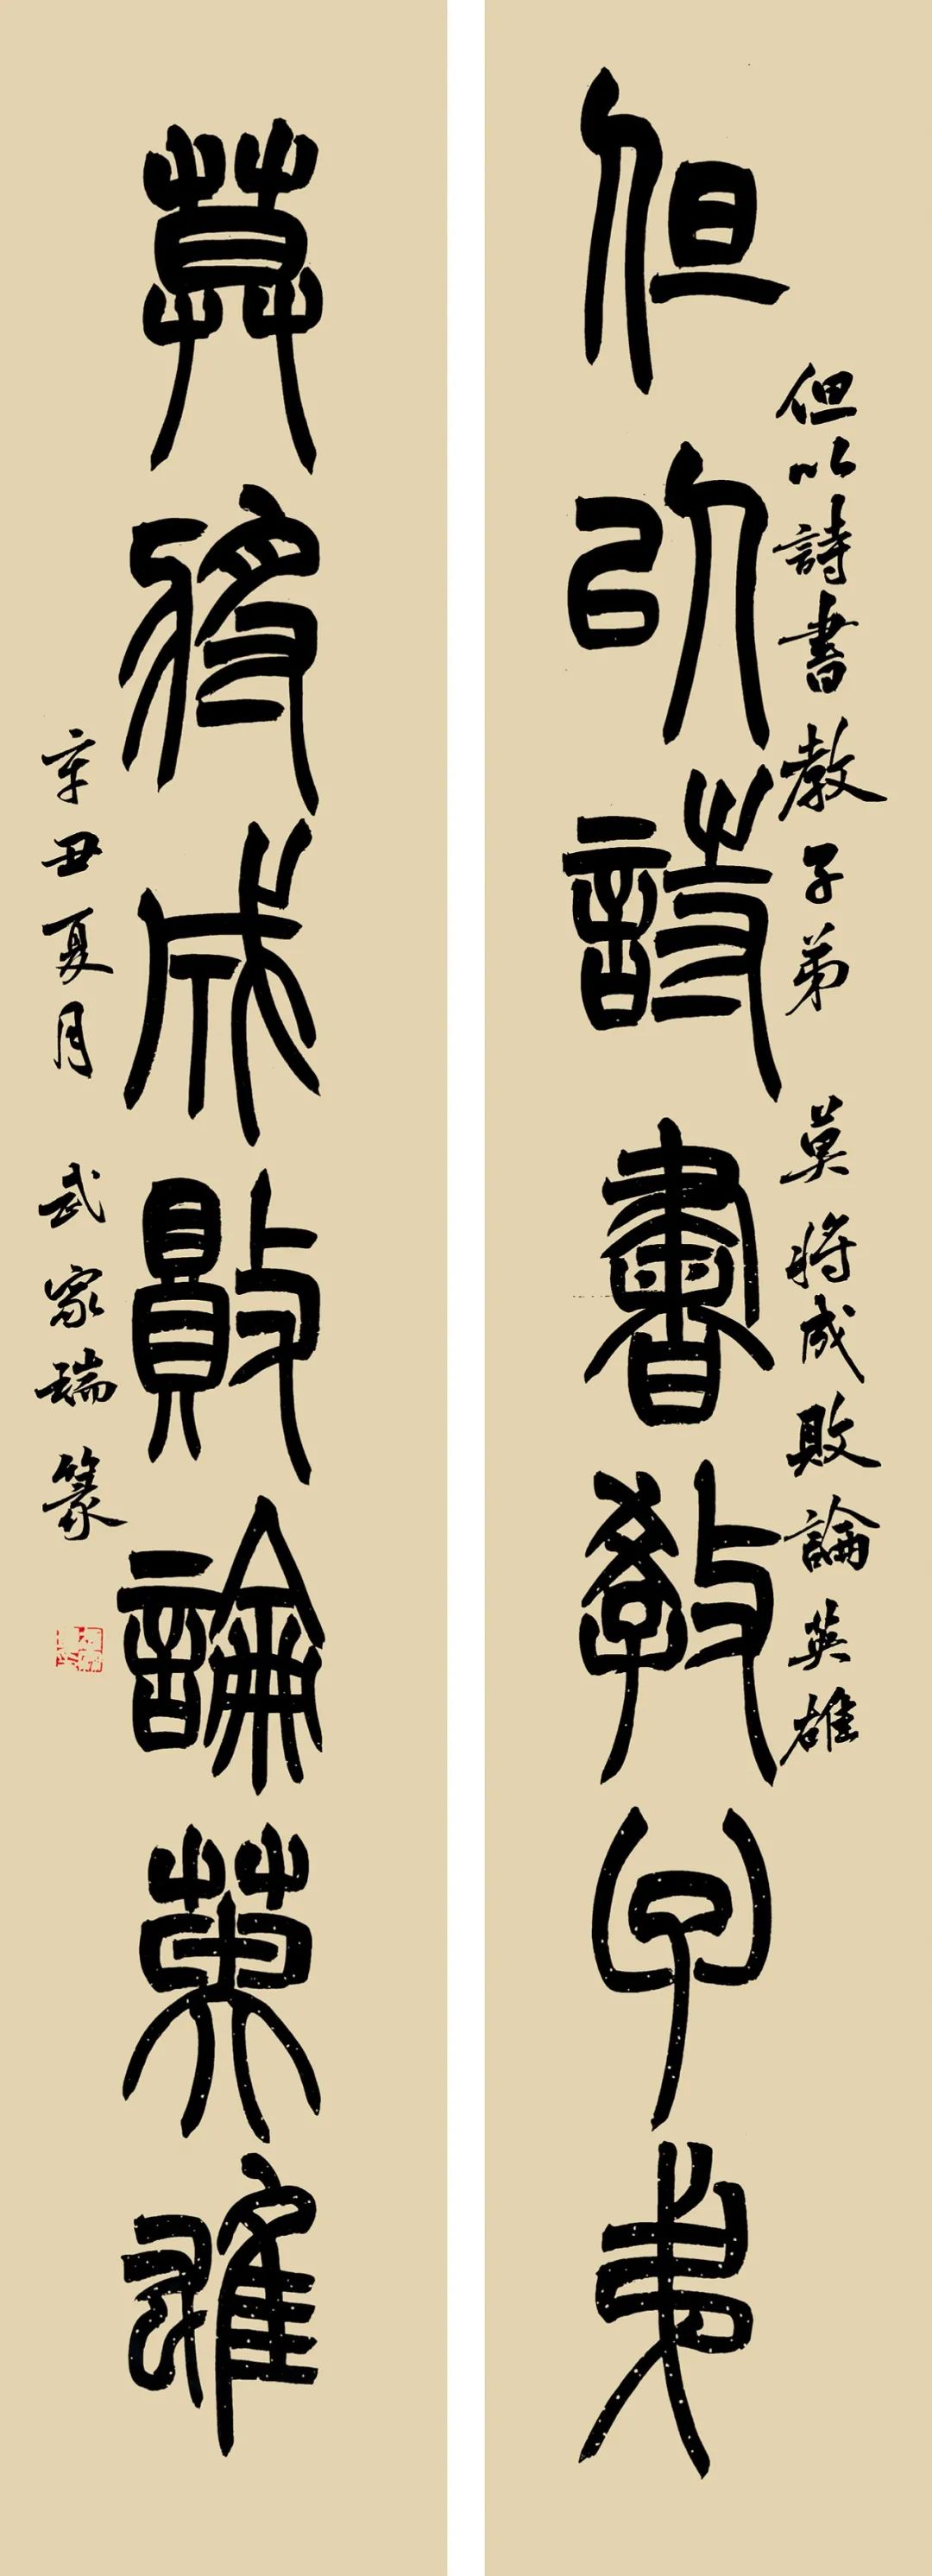 但以詩書教子弟
但以詩書教子弟 莫將成敗論英雄
莫將成敗論英雄
辛丑夏月 武家瑞篆